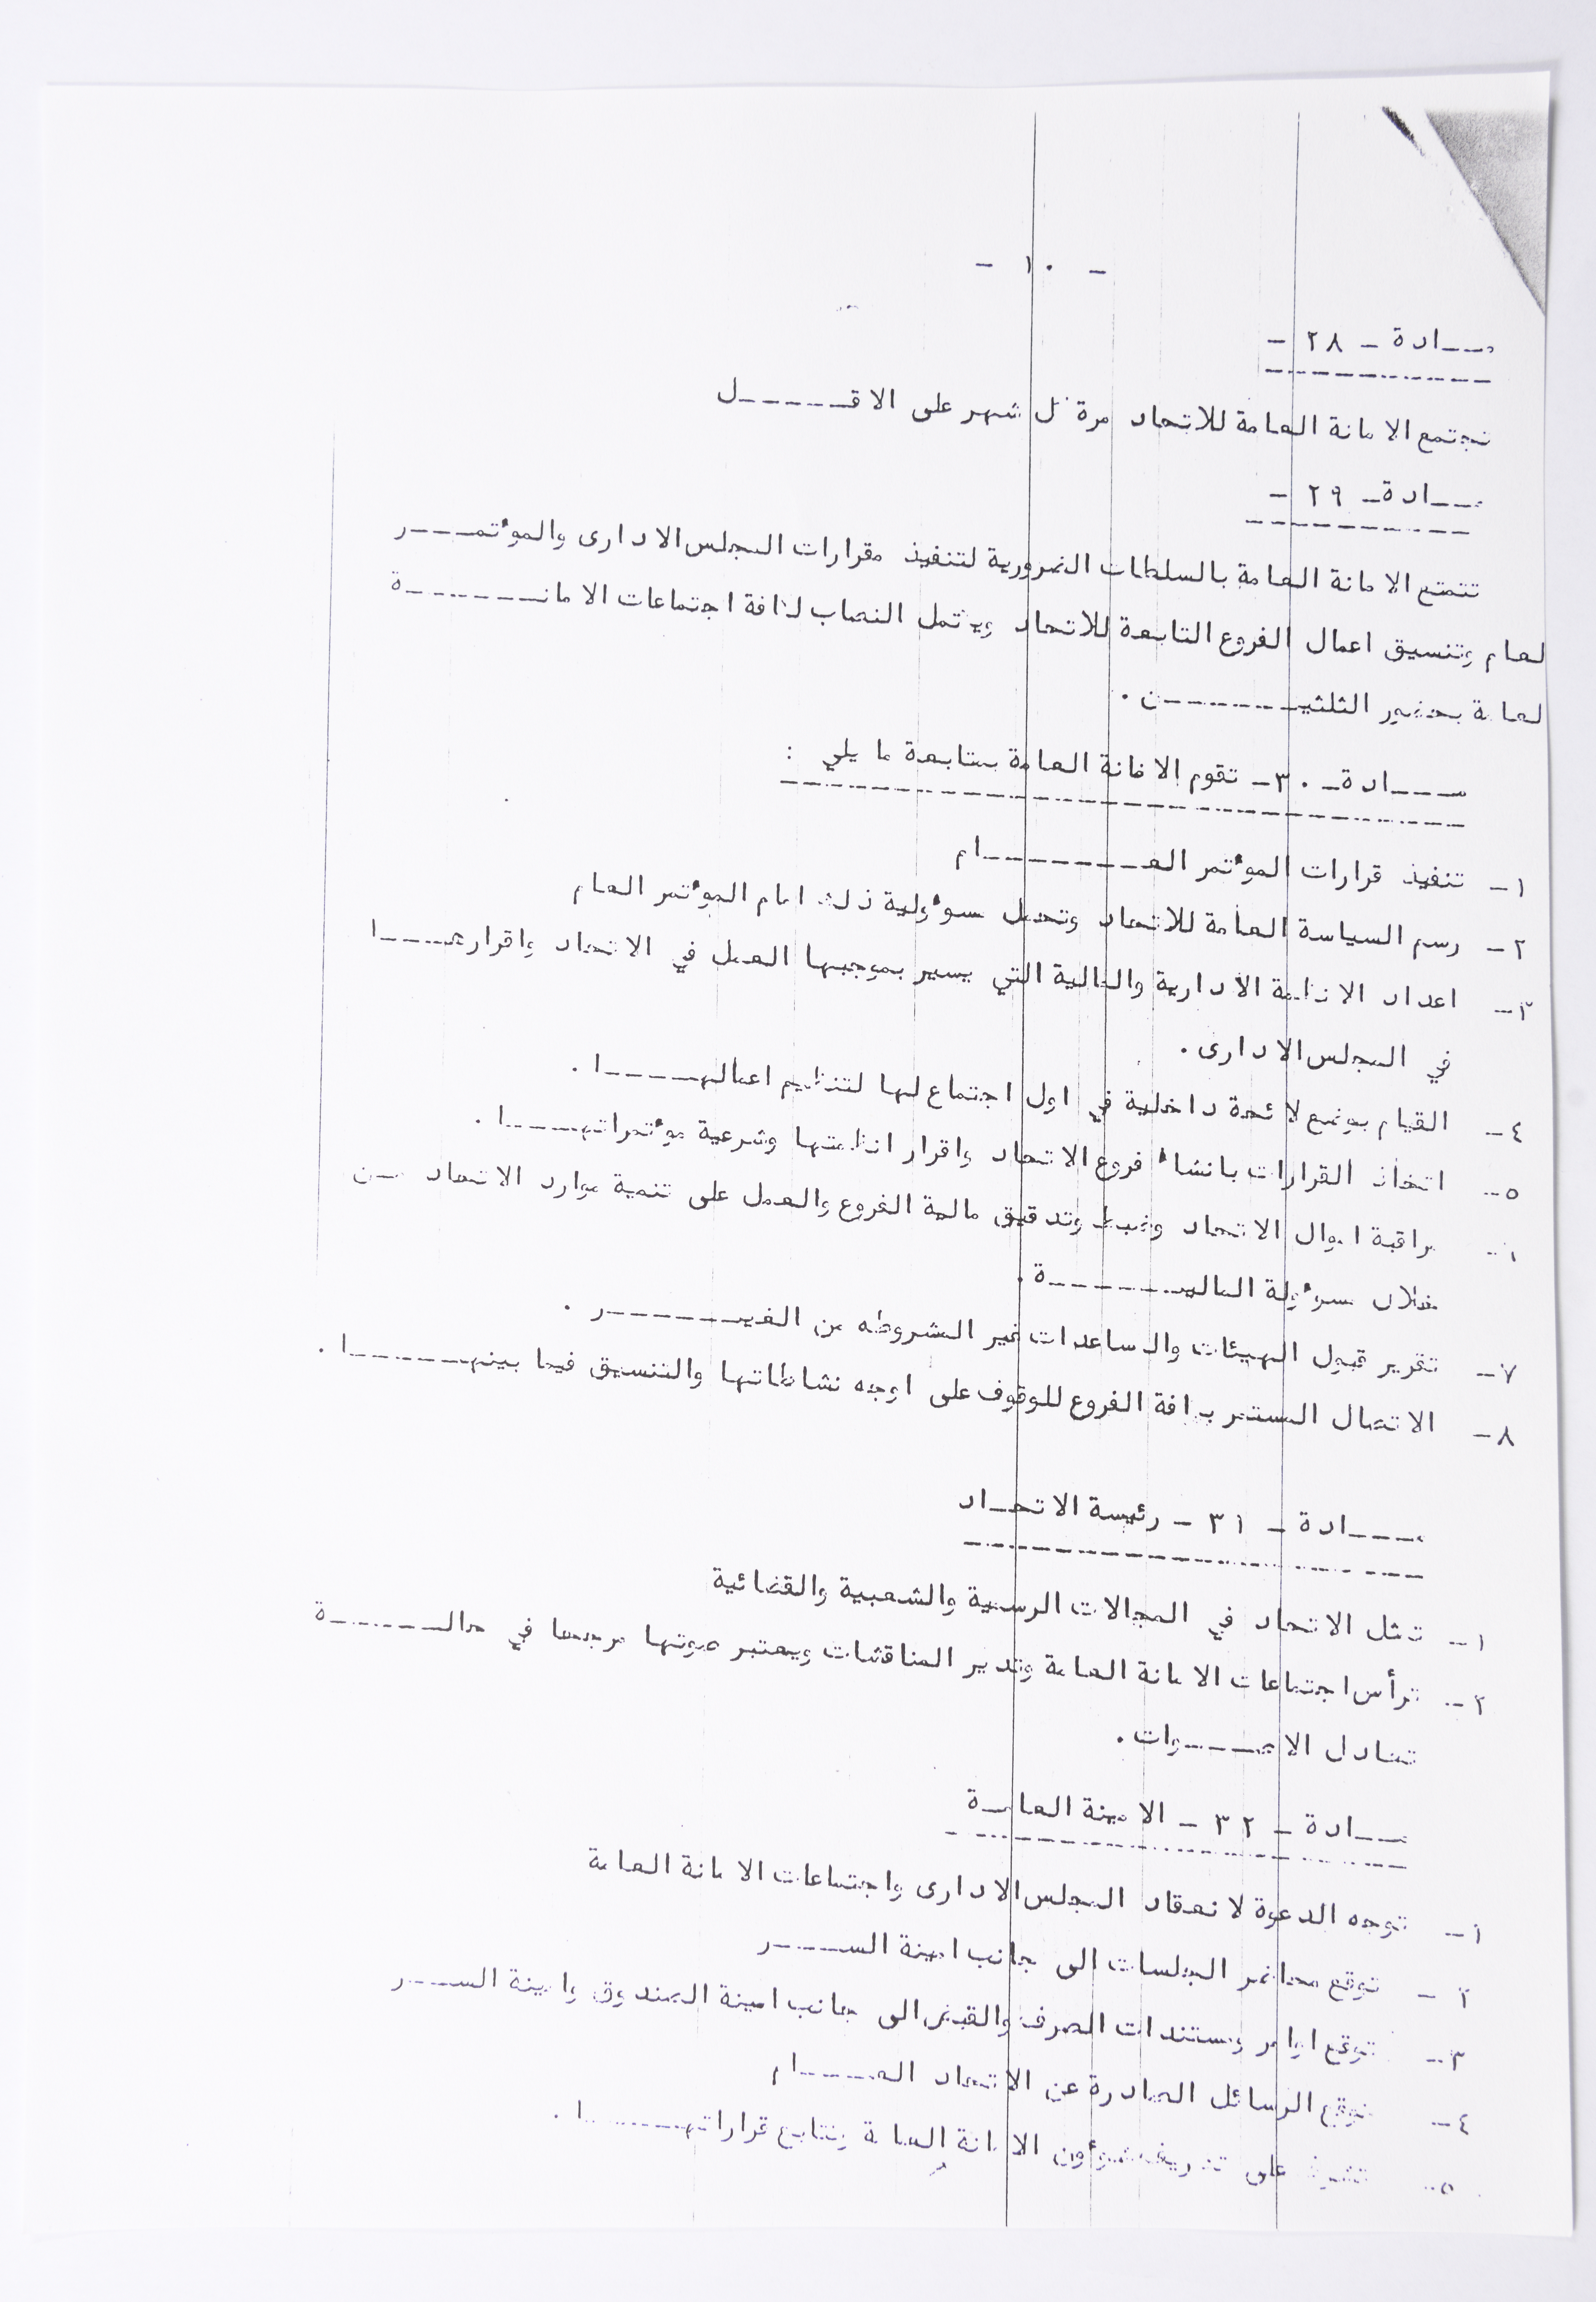 - ١٠ -
مـــادة - ٢٨ -
تجتمع الامانة العامة للاتحاد مرة كل شهر على الاقــــــل
مـــادة - ٢٩ -
تتمتع الامانة العامة بالسلطات الضرورية لتنفيذ مقرارات المجلس الادارى والموئتمـــر
لعام وتنسيق اعمال الفروع التابعة للاتحاد ويكتمل النصاب لكافة اجتماعات الامانـــــــة
لعامة بحضور الثلثيـــــــن .
مـــادة - ٣٠ - تقوم الامانة العامة بمتابعة ما يلي :
١- تنفيذ قرارات الموئتمر العـــــــام
٢- رسم السياسة العامة للاتحاد وتحمل مسوئولية ذلك امام الموئتمر العام
٣- اعداد الانظمة الادارية والمالية التي يسير بموجبها العمل في الاتحاد واقرارهـــا
في المجلس الادارى .
٤- القيام بوضع لائحة داخلية في اول اجتماع لها لتنظيم اعمالهـــــا .
٥- اتخاذ القرارات بانشاء فروع الاتحاد واقرار انظمتها وشرعية موئتمراتهـــــا .
٦- مراقبة اموال الاتحاد وضبط وتدقيق مالية الفروع والعمل على تنمية موارد الاتحاد مـن
خلال مسوئولة الماليـــــــة .
٧- تقرير قبول الهيئات والمساعدات غير المشروطه من الغيـــــــر .
٨- الاتصال المستمر بكافة الفروع للوقوف على اوجه نشاطاتها والتنسيق فيما بينهـــــــا .
مـــادة - ٣١ - رئيسة الاتحـاد
١- تمثل الاتحاد في المجالات الرسمية والشعبية والقضائية
٢- ترأس اجتماعات الامانة العامة وتدير المناقشات ويعتبر صوتها مرجحا في حالـــــــة
تعادل الاصـــــوات .
مـــادة - ٣٢ - الامينة العامـة
١- توجه الدعوة لانعقاد المجلس الادارى واجتماعات الامانة العامة
٢- توقع محاضر الجلسات الى جانب امينة الســـــر
٣- توقع اوامر ومستندات الصرف والقبض الى جانب امينة الصندوق وامينة الســـر
٤- توقع الرسائل الصادرة عن الاتحاد العــــــام
٥- تشرف على تصريف شوئون الامانة العامة وتتابع قراراتهـــــــا .